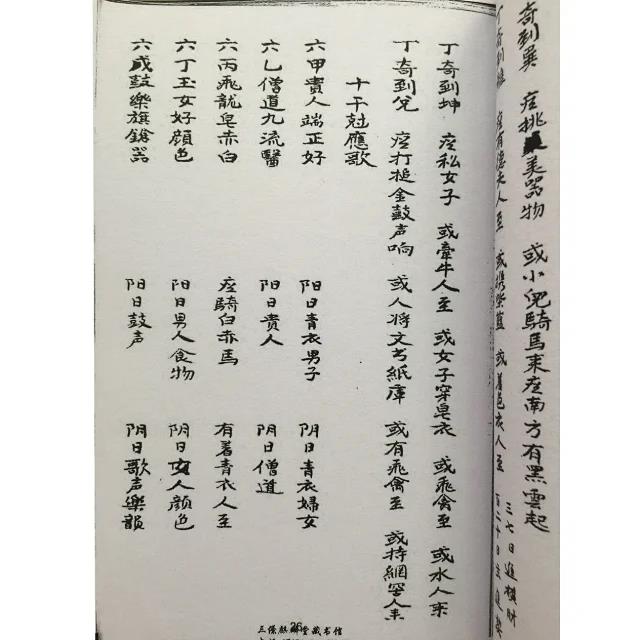 奇到巽 应挑美器物 或小儿騎馬来应南方有黑雲起
三七日進横財
丁奇到坤 应私女子 或牽牛人至 或女子穿皂衣 或飛禽至 或水人来
丁奇到兑 应打搥金鼓声响 或人将文书紙庫 或有飛禽至 或持網罟人来
十干尅應歌
六甲貴人端正好 阳日青衣男子 阴日青衣婦女
六乙僧道九流醫 阳日貴人 阴日僧道
六丙飛龍皂赤白 应騎白赤馬 有着青衣人至
六丁玉女好顔色 阳日男人食物 阴日女人颜色
六戊鼓樂旗鎗器 阳日鼓声 阴日歌声樂韻
26